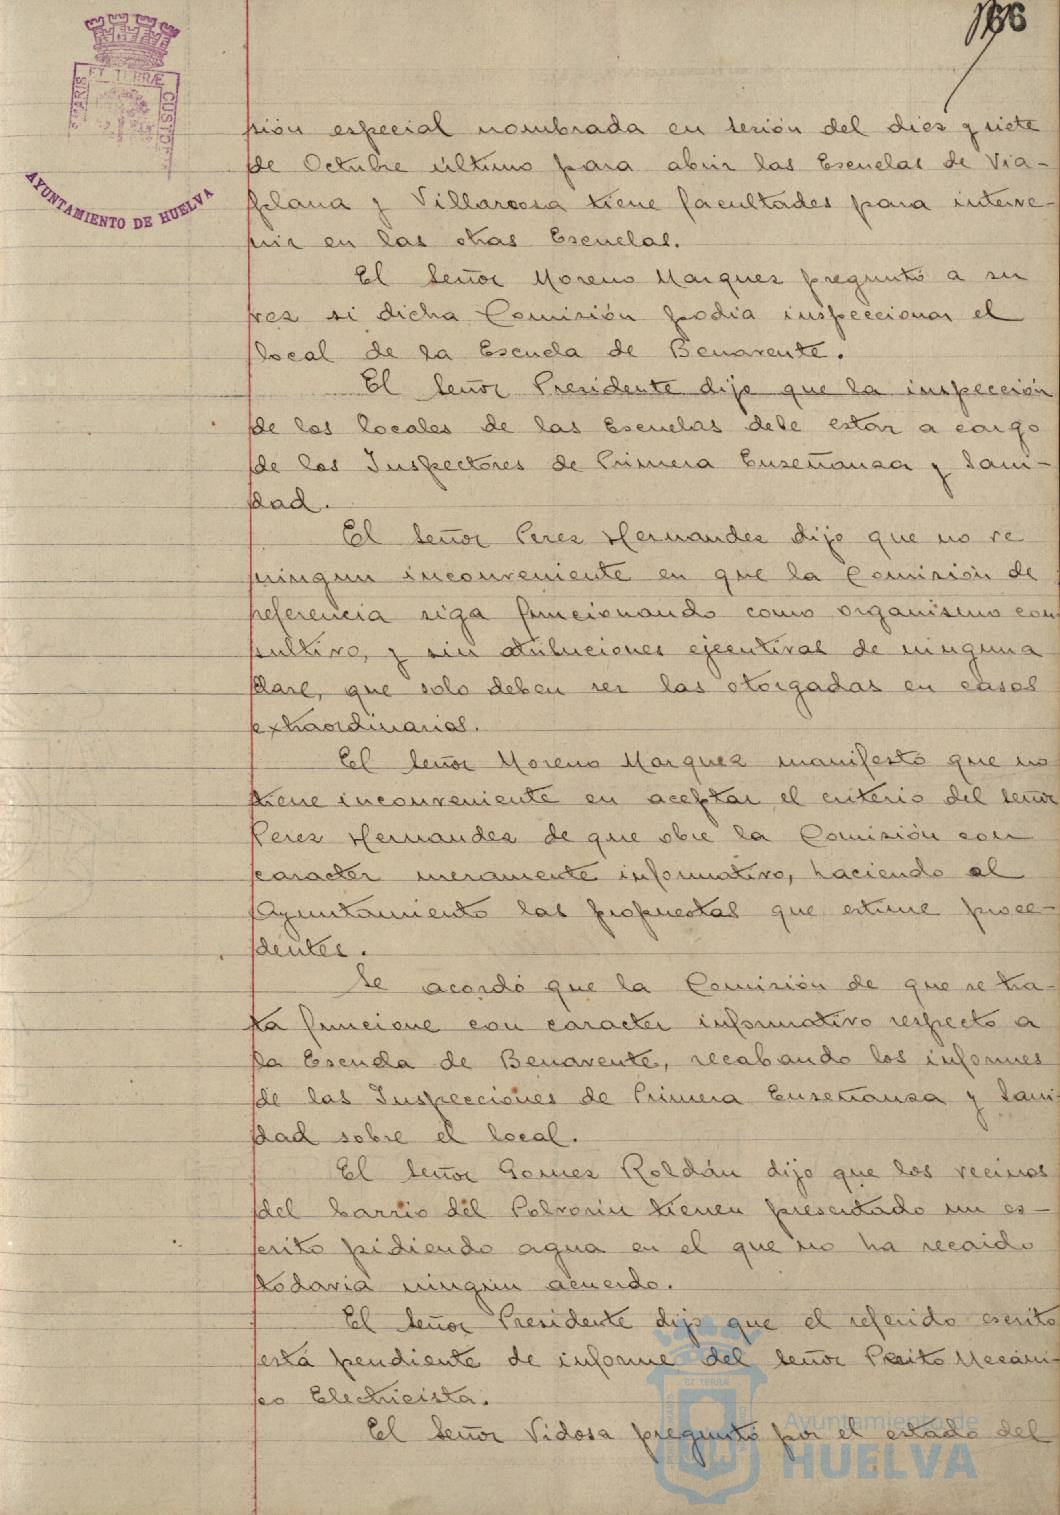 166
PORTUS MARIS ET TERRÆ CUSTODIA
AYUNTAMIENTO DE HUELVA
sión especial nombrada en sesión del diez y siete
de Octubre último para abrir las Escuelas de Via-
plana y Villarrosa tiene facultades para interve-
nir en las otras Escuelas.
El Señor Moreno Marquez preguntó a su
vez si dicha Comisión podia inspeccionar el
local de la Escuela de Benavente.
El Señor Presidente dijo que la inspección
de los locales de las Escuelas debe estar a cargo
de los Inspectores de Primera Enseñanza y Sani-
dad.
El Señor Perez Hernandez dijo que no ve
ningun inconveniente en que la Comisión de
referencia siga funcionando como organismo con-
sultivo, y sin atribuciones ejecutivas de ninguna
clase, que solo deben ser las otorgadas en casos
extraordinarios.
El Señor Moreno Marquez manifestó que no
tiene inconveniente en aceptar el criterio del Señor
Perez Hernandez de que obre la Comisión con
caracter meramente informativo, haciendo al
Ayuntamiento las propuestas que estime proce-
dentes.
Se acordó que la Comisión de que se tra-
ta funcione con caracter informativo respecto a
la Escuela de Benavente, recabando los informes
de las Inspecciones de Primera Enseñanza y Sani-
dad sobre el local.
El Señor Gomez Roldán dijo que los vecinos
del barrio del Polvorin tienen presentado un es-
crito pidiendo agua en el que no ha recaido
todavia ningun acuerdo.
El Señor Presidente dijo que el referido escrito
está pendiente de informe del Señor Perito Mecáni-
co Electricista.
El Señor Vidosa preguntó por el estado del
Ayuntamiento de
HUELVA